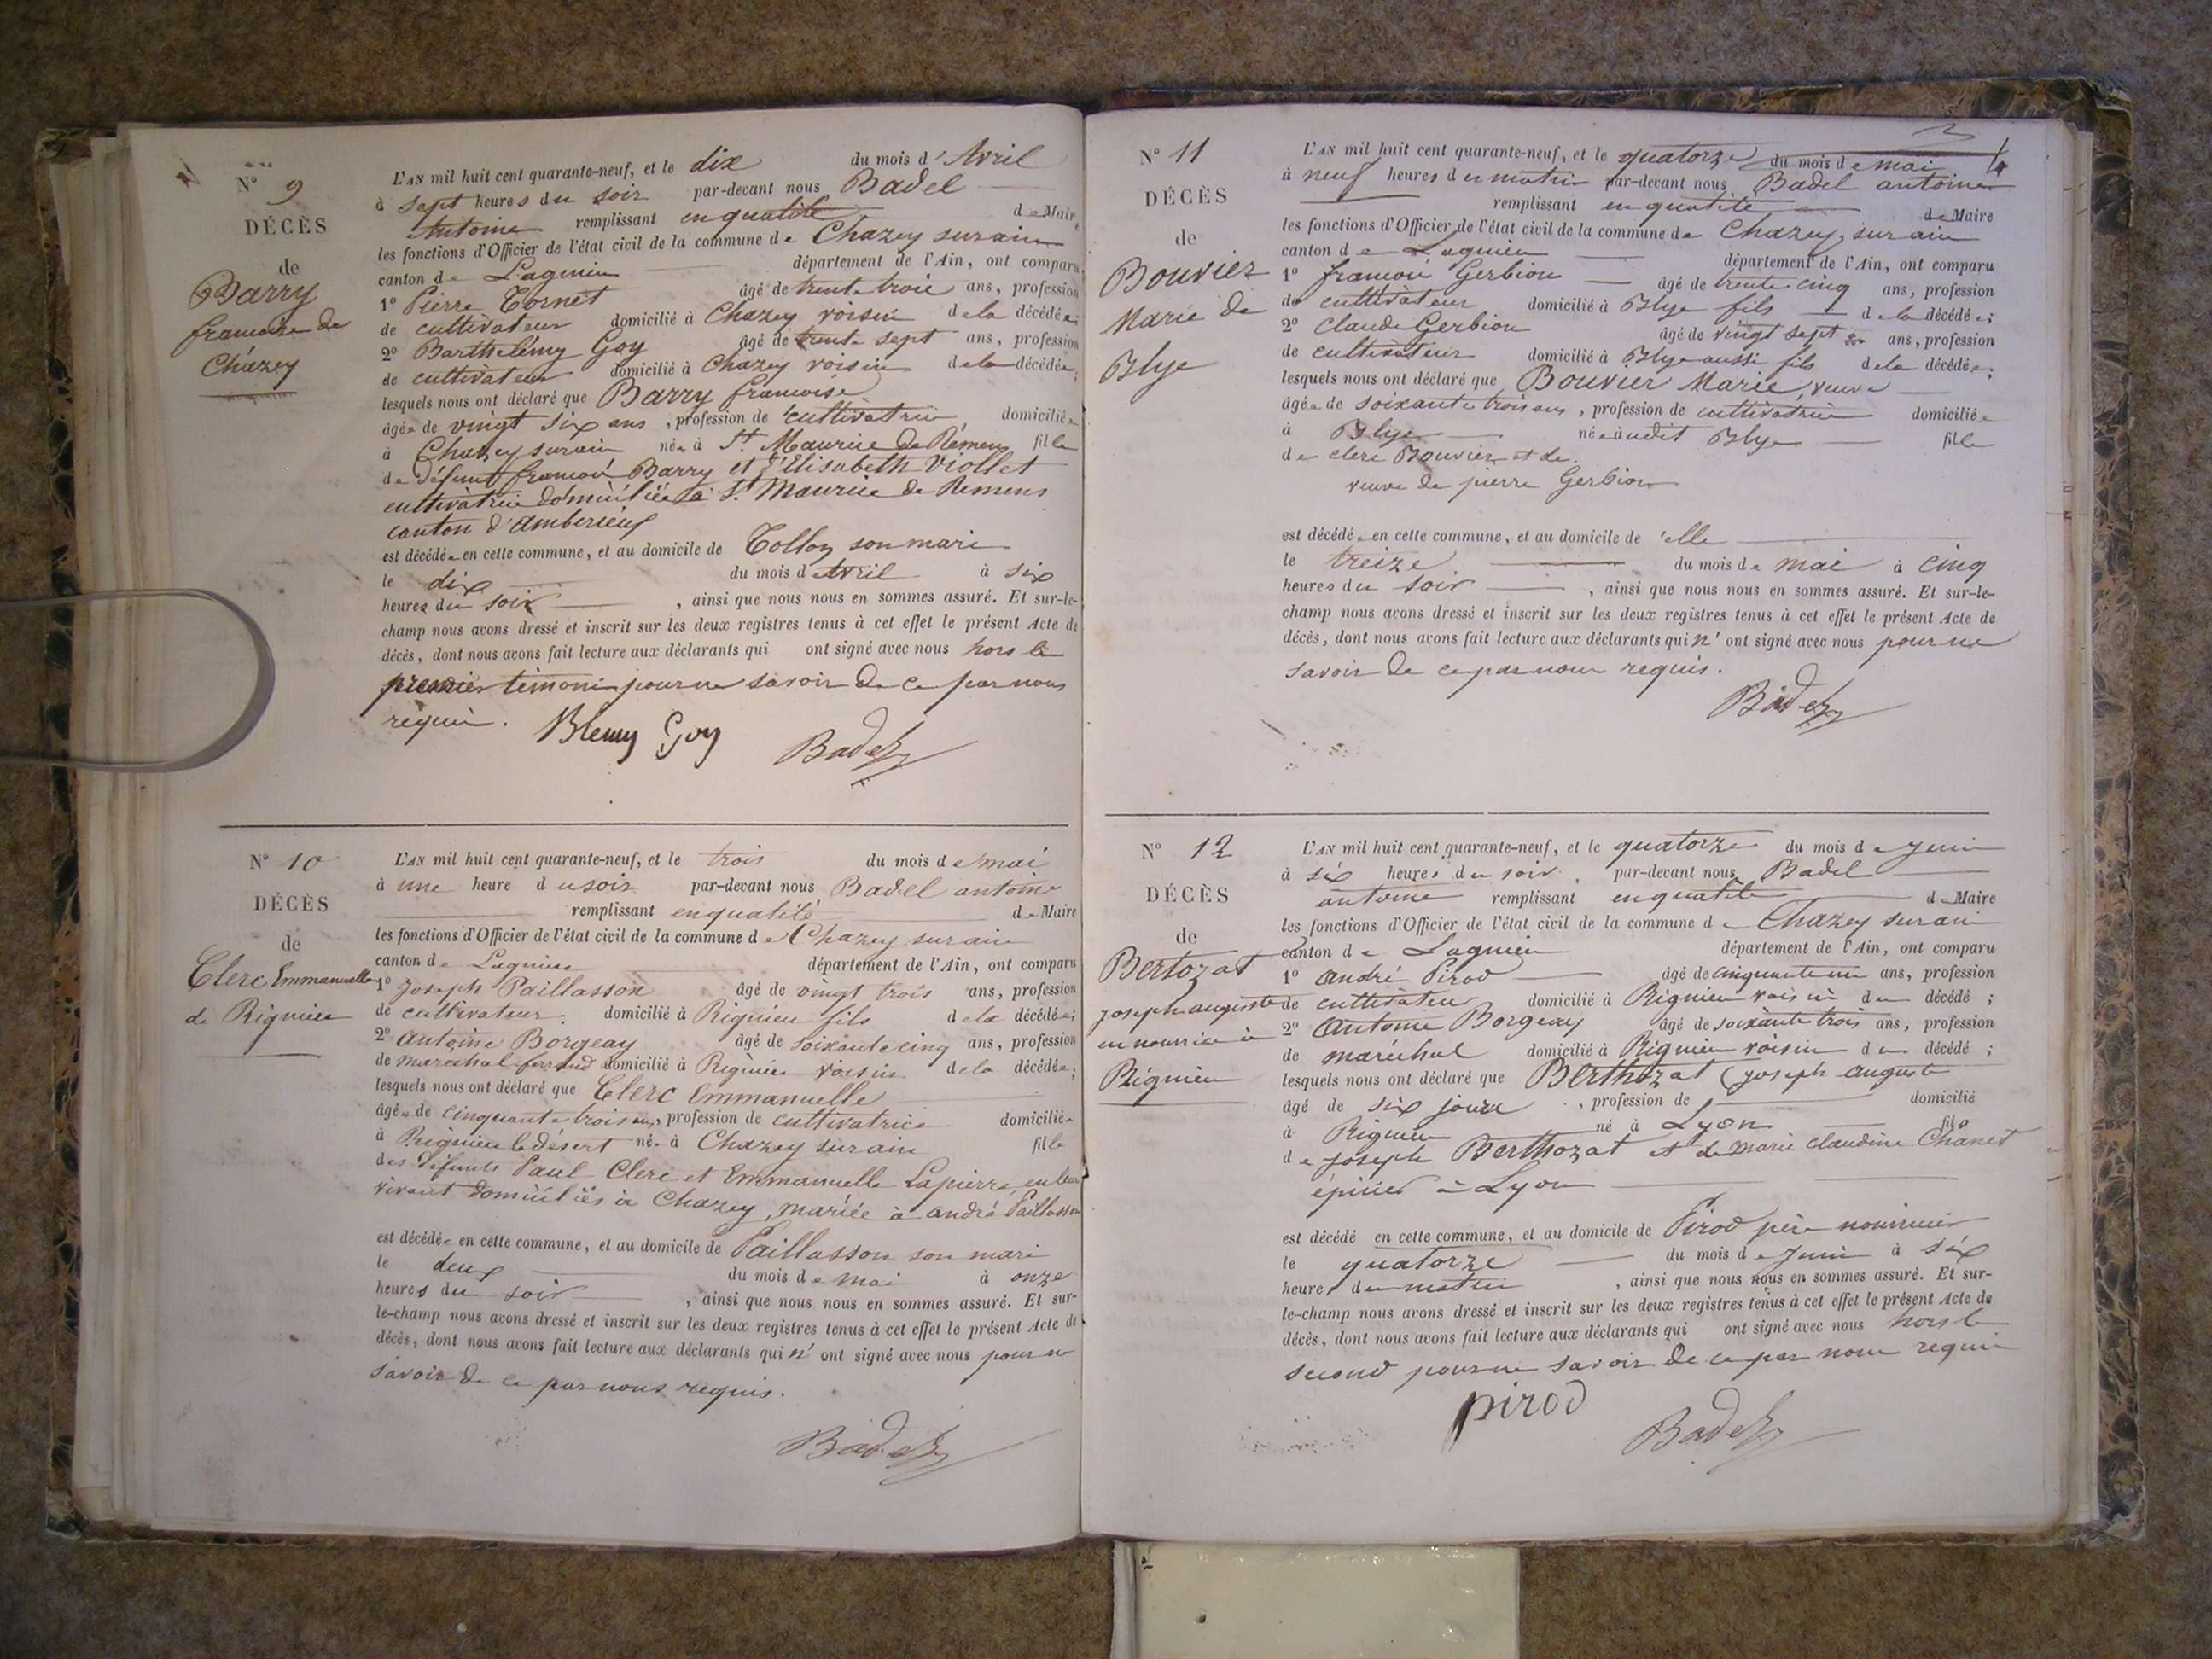 N° 9
DÉCÈS
de
Barry
francoise de
Chazey
L'AN mil huit cent quarante-neuf, et le dix du mois d'Avril
à sept heures du soir par-devant nous Badel
Antoine remplissant en qualité de Maire
les fonctions d'Officier de l'état civil de la commune de Chazey sur ain
canton de Lagnieu département de l'Ain, ont comparu
1° Pierre Cornet âgé de trente trois ans, profession
de cultivateur domicilié à Chazey voisin de la décédée;
2° Barthelémy Goy âgé de trente sept ans, profession
de cultivateur domicilié à Chazey voisin de la décédée;
lesquels nous ont déclaré que Barry francoise
âgée de vingt six ans, profession de cultivatrice domiciliée
à Chazey sur ain née à St Maurice de Rémens fille
de défunt francois Barry et d'Elisabeth Viollet
cultivatrice domiciliée à St Maurice de Remens
canton d'Amberieux
est décédée en cette commune, et au domicile de Collon son mari
le dix du mois d'Avril à six
heures du soir, ainsi que nous nous en sommes assuré. Et sur-le-
champ nous avons dressé et inscrit sur les deux registres tenus à cet effet le présent Acte de
décès, dont nous avons fait lecture aux déclarants qui ont signé avec nous hors le
premier témoin pour ne savoir de ce par nous
requis. Blemy Goy Badel
N° 10
DÉCÈS
de
Clerc Emmanuelle
de Rignieu
L'AN mil huit cent quarante-neuf, et le trois du mois de mai
à une heure du soir par-devant nous Badel antoine
remplissant en qualité de Maire
les fonctions d'Officier de l'état civil de la commune de Chazey sur ain
canton de Lagnieu département de l'Ain, ont comparu
1° Joseph Paillasson âgé de vingt trois ans, profession
de cultivateur. domicilié à Rignieu fils de la décédée;
2° antoine Borgeay âgé de soixante cinq ans, profession
de marechal ferrand domicilié à Rignieu voisin de la décédée;
lesquels nous ont déclaré que Clerc Emmanuelle
âgée de cinquante trois ans, profession de cultivatrice domiciliée
à Rignieu le désert née à Chazey sur ain fille
des défunts Paul Clerc et Emmanuelle Lapierre, en leur
vivant domiciliés à Chazey, mariée à andré Paillasson
est décédée en cette commune, et au domicile de Paillasson son mari
le deux du mois de mai à onze
heures du soir, ainsi que nous nous en sommes assuré. Et sur-
le-champ nous avons dressé et inscrit sur les deux registres tenus à cet effet le présent Acte de
décès, dont nous avons fait lecture aux déclarants qui n' ont signé avec nous pour ne
savoir de ce par nous requis.
Badel
N° 11
DÉCÈS
de
Bouvier
Marie de
Blye
L'AN mil huit cent quarante-neuf, et le quatorze du mois de mai
à neuf heures du matin par-devant nous Badel antoine
remplissant en qualité de Maire
les fonctions d'Officier de l'état civil de la commune de Chazey, sur ain
canton de Lagnieu département de l'Ain, ont comparu
1° francois Gerbion âgé de trente cinq ans, profession
de cultivateur domicilié à Blye fils de la décédée;
2° Claude Gerbion âgé de vingt sept ans, profession
de cultivateur domicilié à Blye aussi fils de la décédée;
lesquels nous ont déclaré que Bouvier Marie, veuve
âgée de soixante trois ans, profession de cultivatrice domiciliée
à Blye née audit Blye fille
de clere Bouvier et de
veuve de pierre Gerbion
est décédée en cette commune, et au domicile de 'elle
le treize du mois de mai à cinq
heures du soir, ainsi que nous nous en sommes assuré. Et sur-le-
champ nous avons dressé et inscrit sur les deux registres tenus à cet effet le présent Acte de
décès, dont nous avons fait lecture aux déclarants qui n' ont signé avec nous pour ne
savoir de ce par nous requis.
Badel
N° 12
DÉCÈS
de
Bertozat
joseph auguste
en nourrice à
Rignieu
L'AN mil huit cent quarante-neuf, et le quatorze du mois de Juin
à six heures du soir, par-devant nous Badel
antoine remplissant en qualité de Maire
les fonctions d'Officier de l'état civil de la commune de Chazey sur ain
canton de Lagnieu département de l'Ain, ont comparu
1° andré Pirod âgé de cinquante un ans, profession
de cultivateur domicilié à Rignieu voisin du décédé;
2° Antoine Borgeay âgé de soixante trois ans, profession
de maréchal domicilié à Rignieu voisin du décédé;
lesquels nous ont déclaré que Berthozat joseph auguste
âgé de six jours, profession de domicilié
à Rignieu né à Lyon fils
de joseph Berthozat et de marie claudine Chanet
épicier à Lyon
est décédé en cette commune, et au domicile de Pirod père nourricier
le quatorze du mois de Juin à six
heure du matin, ainsi que nous nous en sommes assuré. Et sur-
le-champ nous avons dressé et inscrit sur les deux registres tenus à cet effet le présent Acte de
décès, dont nous avons fait lecture aux déclarants qui ont signé avec nous hors le
second pour ne savoir de ce par nous requis
pirod Badel